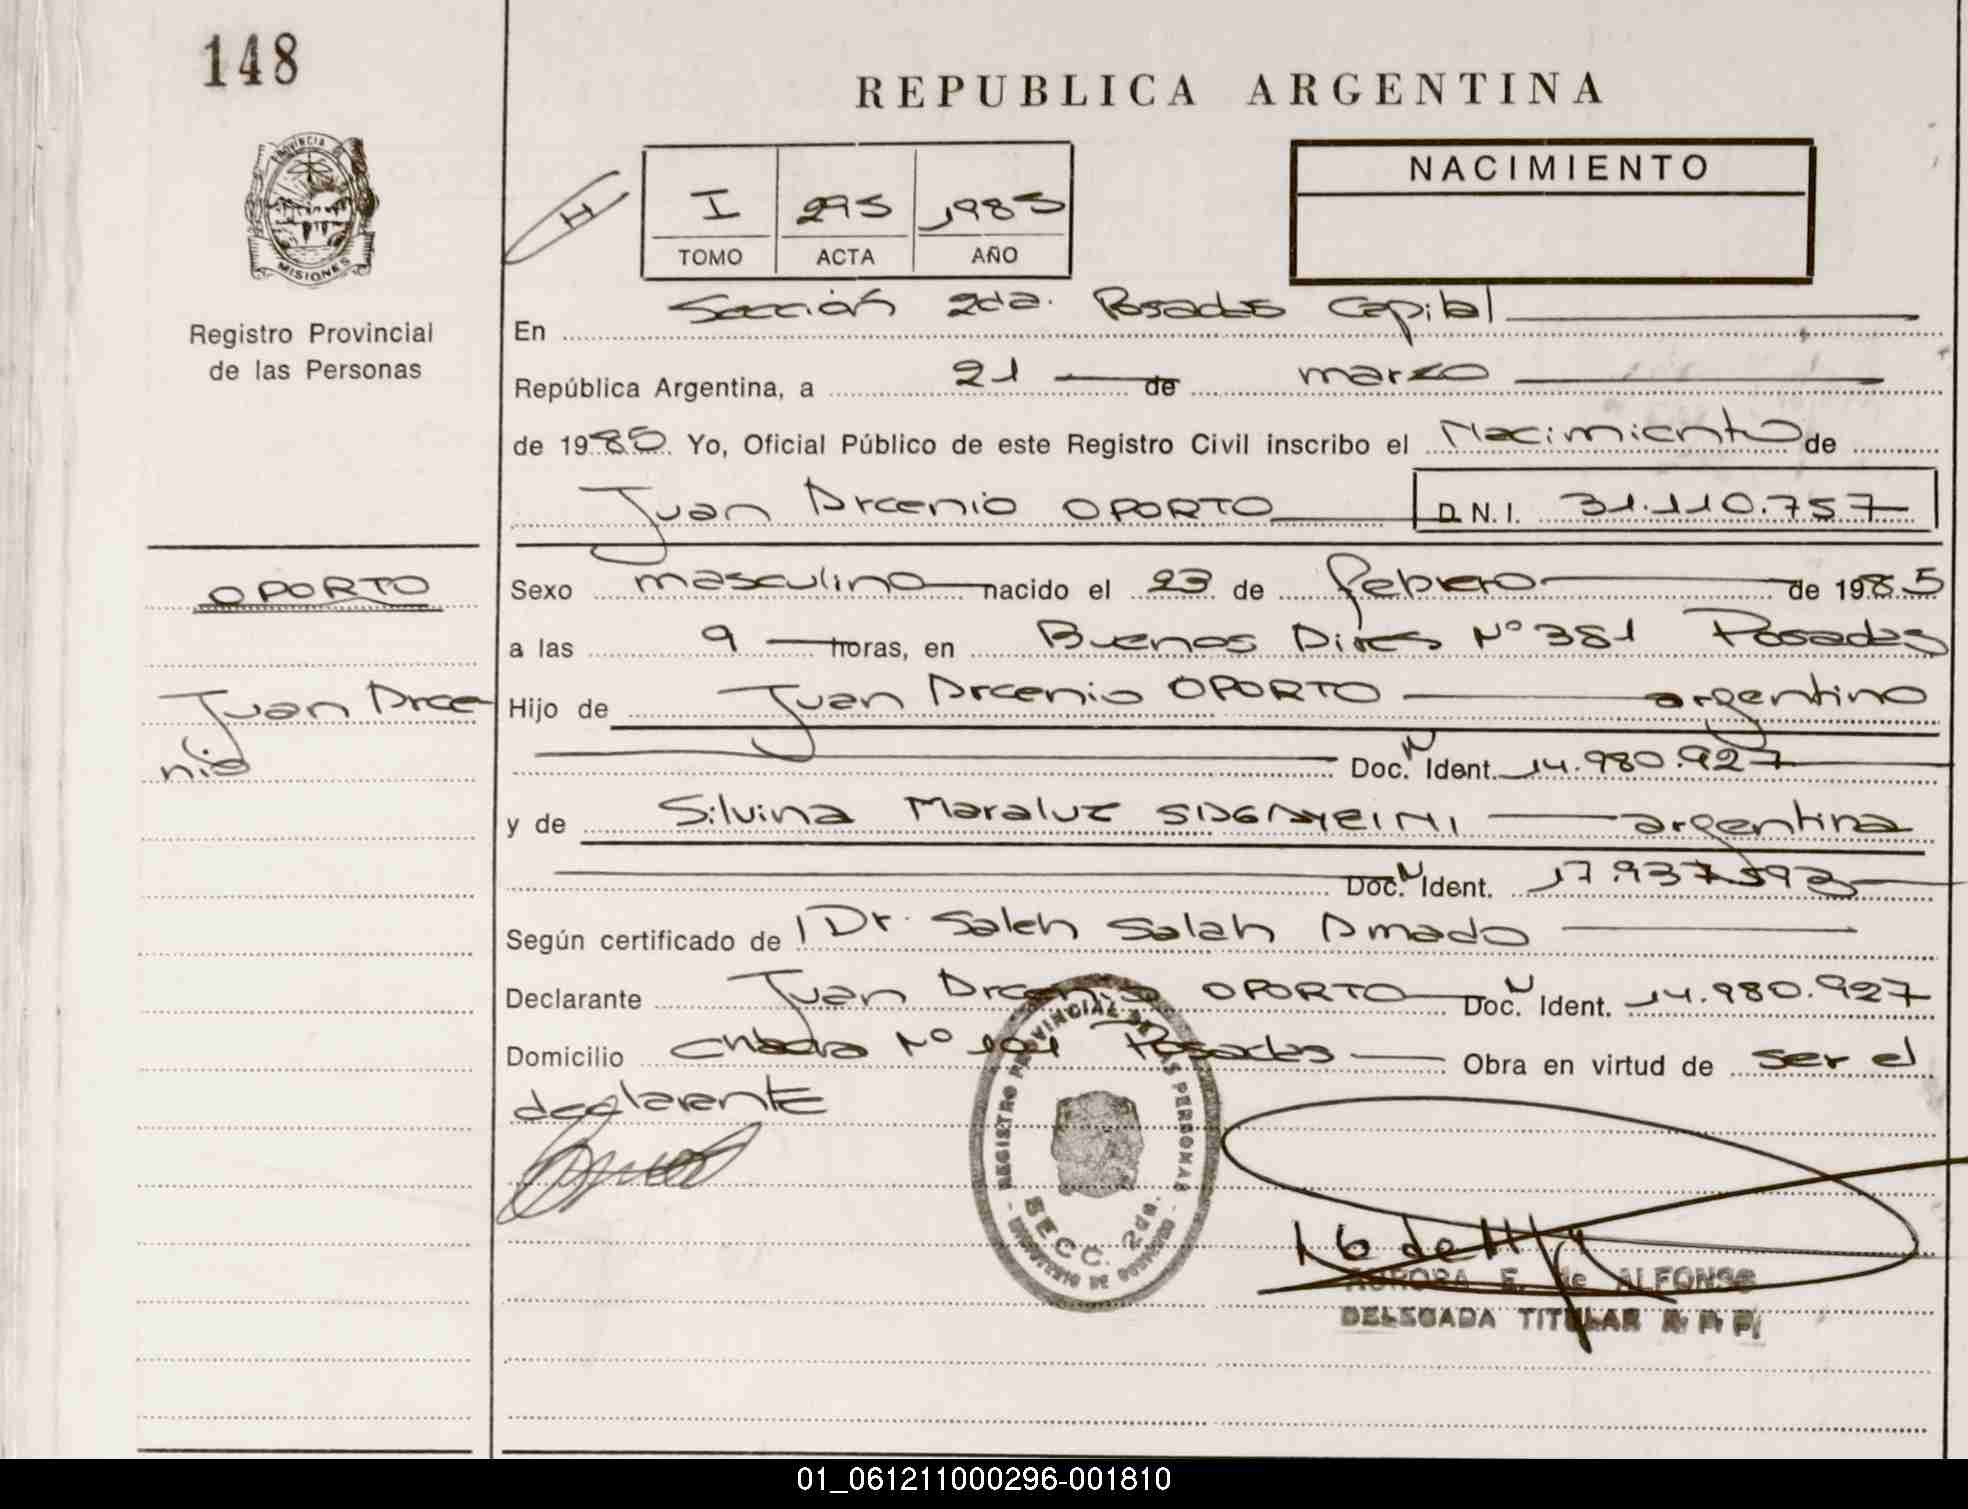 148
REPUBLICA ARGENTINA
PROVINCIA DE
MISIONES
Registro Provincial
de las Personas
H
I 295 1985
TOMO ACTA AÑO
NACIMIENTO
En Sección 2da. Posadas Capital
República Argentina, a 21 de marzo
de 1985 Yo, Oficial Público de este Registro Civil inscribo el Nacimiento de
Juan Arcenio OPORTO D.N.I. 31.110.757
OPORTO
Juan Arce
nio
Sexo masculino nacido el 23 de febrero de 1985
a las 9 horas, en Buenos Aires Nº 381 Posadas
Hijo de Juan Arcenio OPORTO argentino
Doc. N Ident. 14.980.927
y de Silvina Maraluz argentina
Doc. N Ident. 17.937.593
Según certificado de Dr. Saleh Salah Amado
Declarante Juan Arcenio OPORTO Doc. N Ident. 14.980.927
Domicilio Chacra Nº 101 Posadas Obra en virtud de ser el
declarante
REGISTRO PROVINCIAL DE LAS PERSONAS
SECC. 2da.
MINISTERIO DE GOBIERNO
AURORA E. de ALFONSO
DELEGADA TITULAR R. P. P.
01_061211000296-001810